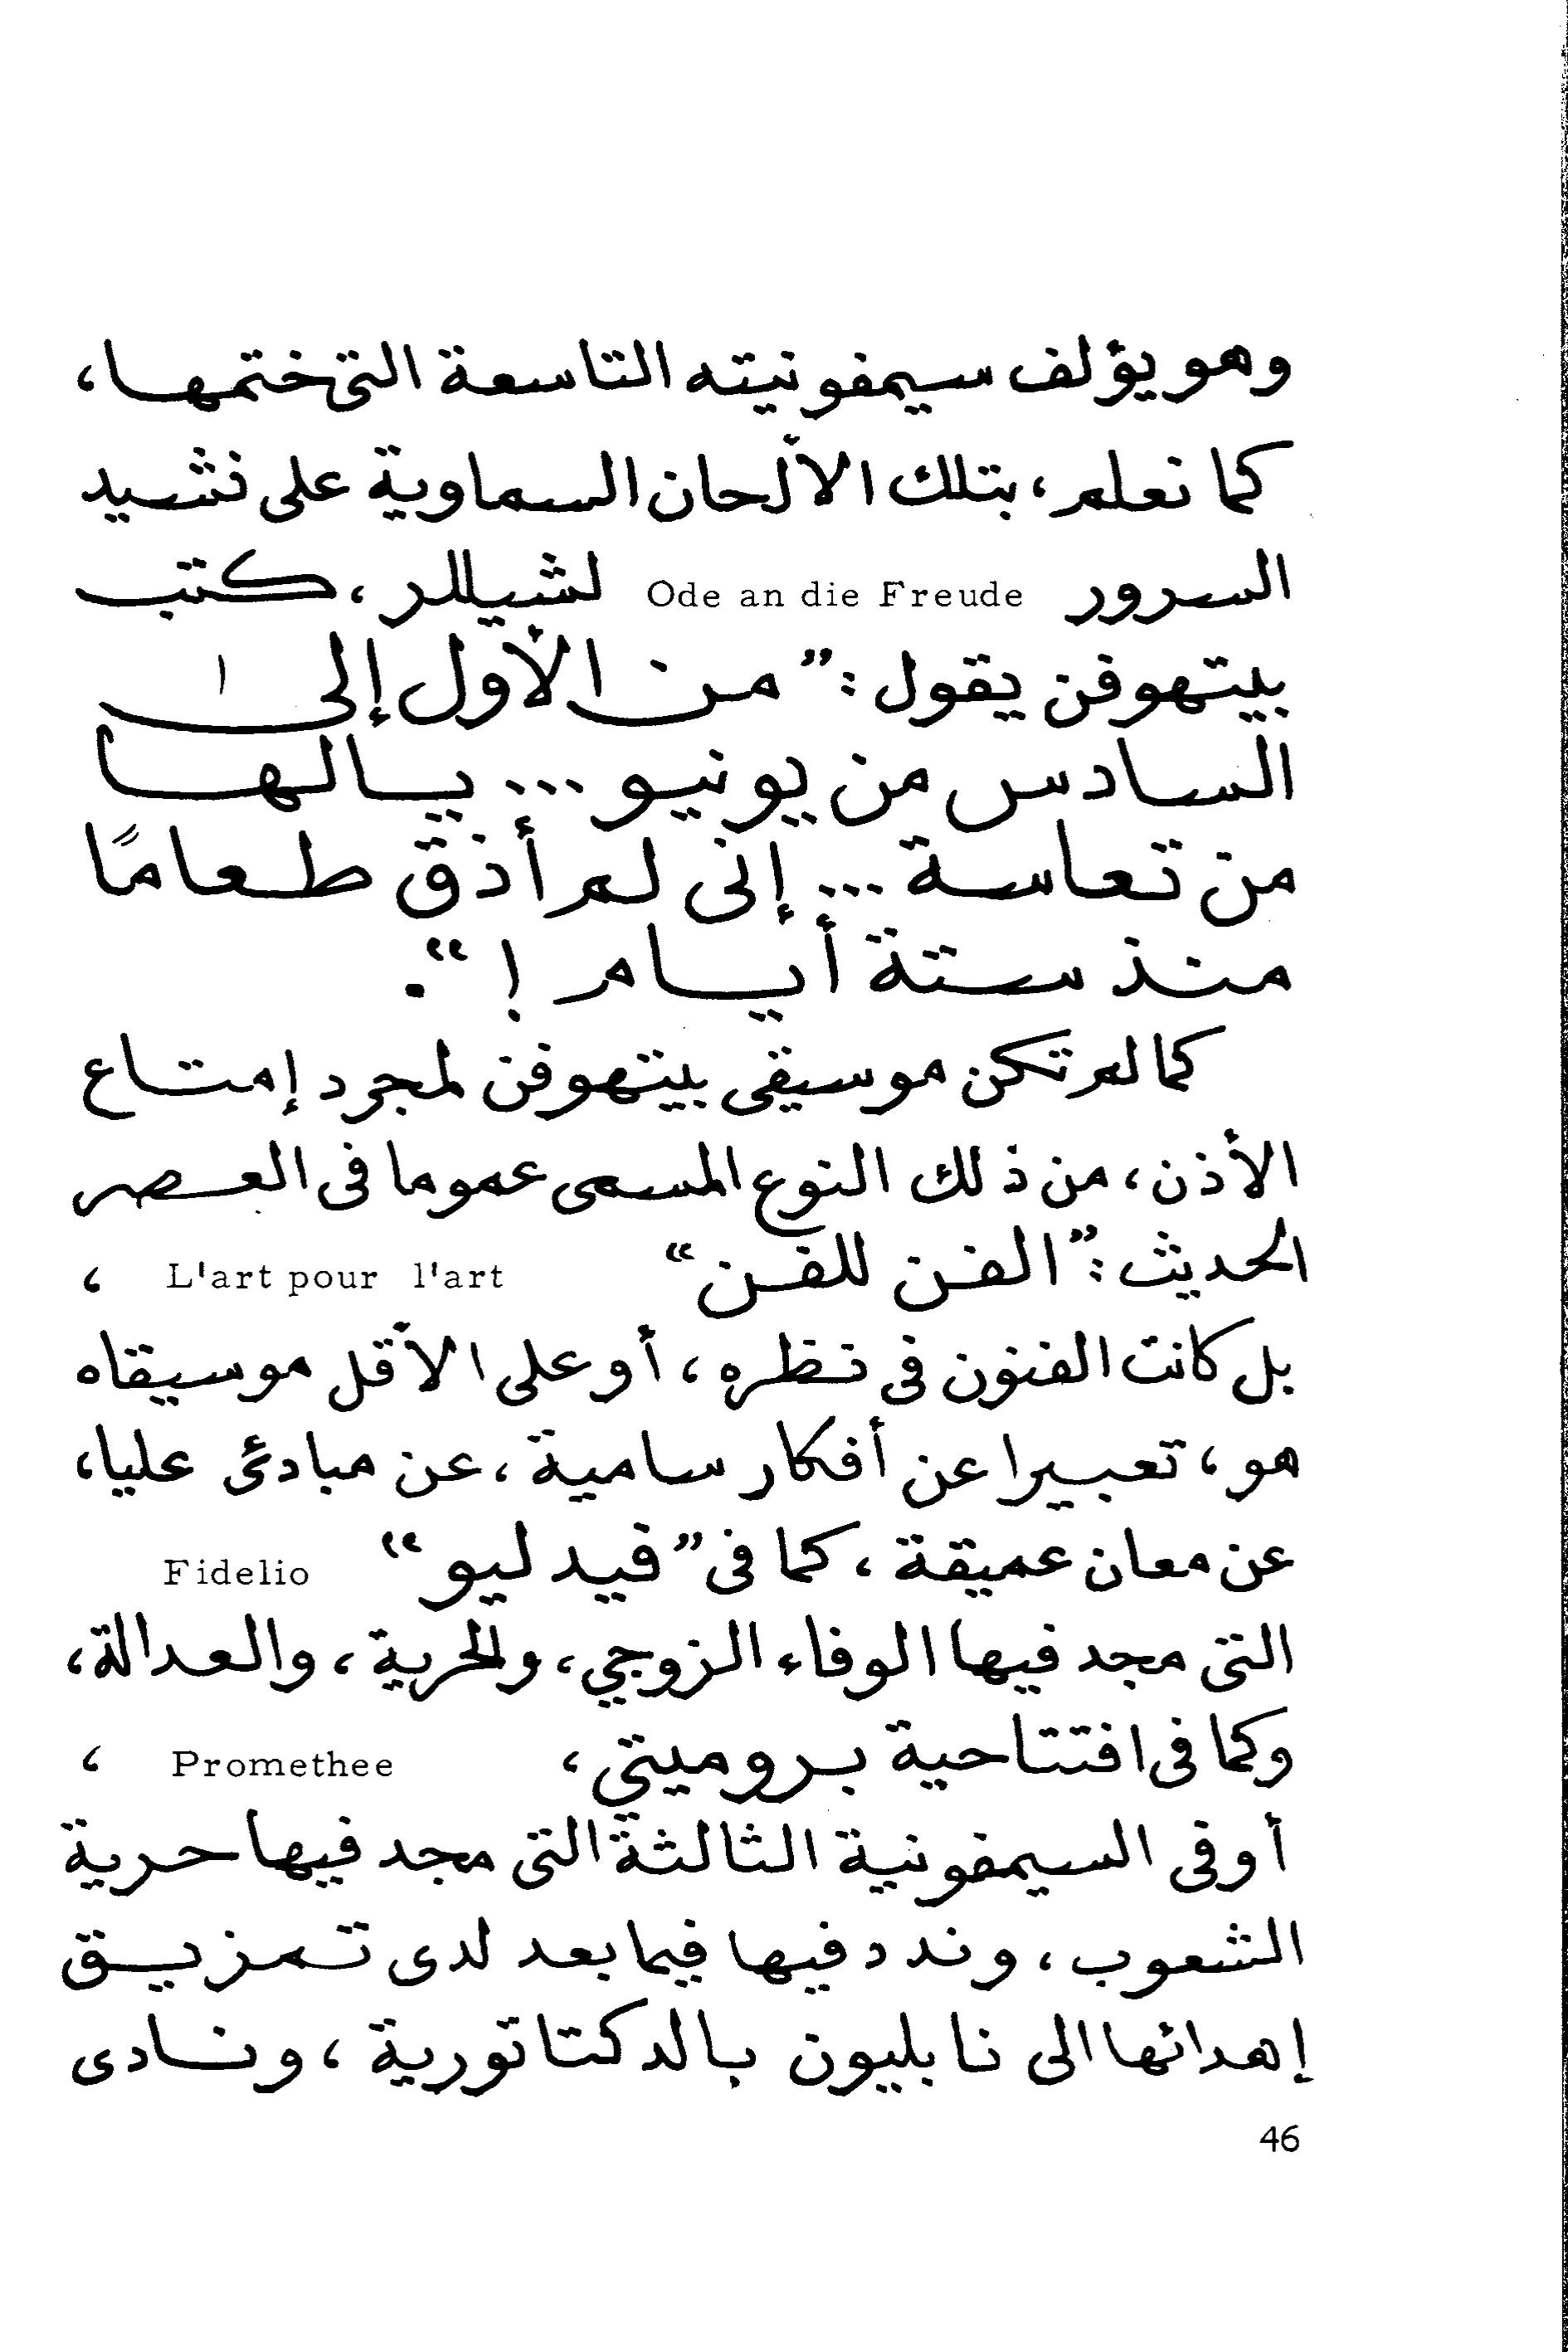 وهو يؤلف سيمفونيته التاسعة التى ختمها،
كما نعلم، بتلك الألحان السماوية على نشيد
السرور Ode an die Freude لشيللر، كتب
بيتهوفن يقول: ”من الأول إلى
السادس من يونيو ... يالها
من تعاسة ... إنى لم أذق طعامًا
منذ ستة أيام !“.
كما لم تكن موسيقى بيتهوفن لمجرد إمتاع
الأذن، من ذلك النوع المسمى عموما فى العصر
الحديث: ”الفن للفن“ L'art pour l'art ،
بل كانت الفنون فى نظره، أو على الأقل موسيقاه
هو، تعبيرا عن أفكار سامية، عن مبادئ عليا،
عن معان عميقة، كما فى ”فيدليو“ Fidelio
التى مجد فيها الوفاء الزوجي، والحرية، والعدالة،
وكما فى افتتاحية بروميتي، Promethee ،
أو فى السيمفونية الثالثة التى مجد فيها حرية
الشعوب، وندد فيها فيما بعد لدى تمزيق
إهدائها الى نابليون بالدكتاتورية، ونادى
46